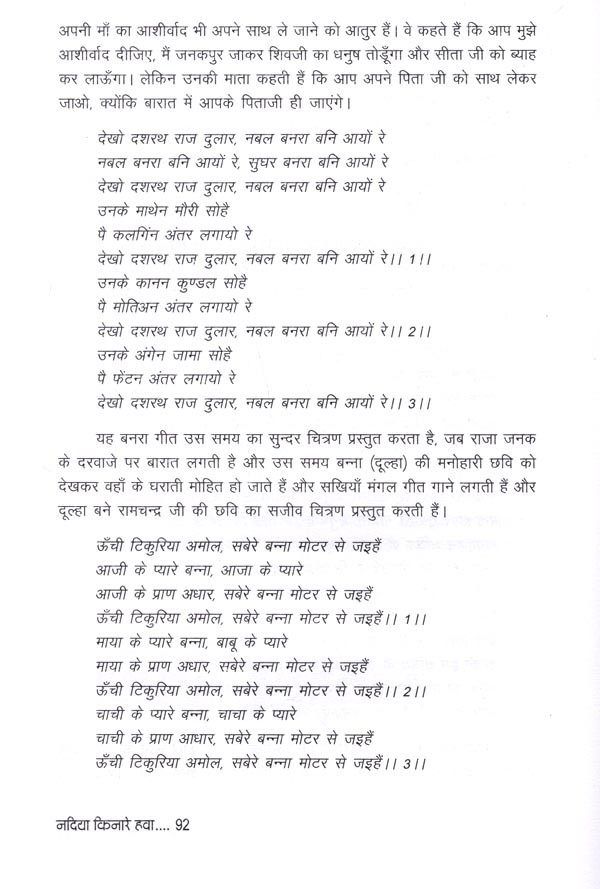 अपनी माँ का आशीर्वाद भी अपने साथ ले जाने को आतुर हैं। वे कहते हैं कि आप मुझे
आशीर्वाद दीजिए, मैं जनकपुर जाकर शिवजी का धनुष तोड़ूँगा और सीता जी को ब्याह
कर लाऊँगा। लेकिन उनकी माता कहती हैं कि आप अपने पिता जी को साथ लेकर
जाओ, क्योंकि बारात में आपके पिताजी ही जाएंगे।
देखो दशरथ राज दुलार, नबल बनरा बनि आयों रे
नबल बनरा बनि आयों रे, सुघर बनरा बनि आयों रे
देखो दशरथ राज दुलार, नबल बनरा बनि आयों रे
उनके माथेन मौरी सोहै
पै कलगिंन अंतर लगायो रे
देखो दशरथ राज दुलार, नबल बनरा बनि आयों रे।। 1।।
उनके कानन कुण्डल सोहै
पै मोतिअन अंतर लगायो रे
देखो दशरथ राज दुलार, नबल बनरा बनि आयों रे।। 2।।
उनके अंगेन जामा सोहै
पै फेंटन अंतर लगायो रे
देखो दशरथ राज दुलार, नबल बनरा बनि आयों रे।। 3।।
यह बनरा गीत उस समय का सुन्दर चित्रण प्रस्तुत करता है, जब राजा जनक
के दरवाजे पर बारात लगती है और उस समय बन्ना (दूल्हा) की मनोहारी छवि को
देखकर वहाँ के घराती मोहित हो जाते हैं और सखियाँ मंगल गीत गाने लगती हैं और
दूल्हा बने रामचन्द्र जी की छवि का सजीव चित्रण प्रस्तुत करती हैं।
ऊँची टिकुरिया अमोल, सबेरे बन्ना मोटर से जइहैं
आजी के प्यारे बन्ना, आजा के प्यारे
आजी के प्राण अधार, सबेरे बन्ना मोटर से जइहैं
ऊँची टिकुरिया अमोल, सबेरे बन्ना मोटर से जइहैं।। 1।।
माया के प्यारे बन्ना, बाबू के प्यारे
माया के प्राण अधार, सबेरे बन्ना मोटर से जइहैं
ऊँची टिकुरिया अमोल, सबेरे बन्ना मोटर से जइहैं।। 2।।
चाची के प्यारे बन्ना, चाचा के प्यारे
चाची के प्राण आधार, सबेरे बन्ना मोटर से जइहैं
ऊँची टिकुरिया अमोल, सबेरे बन्ना मोटर से जइहैं।। 3।।
नदिया किनारे हवा.... 92